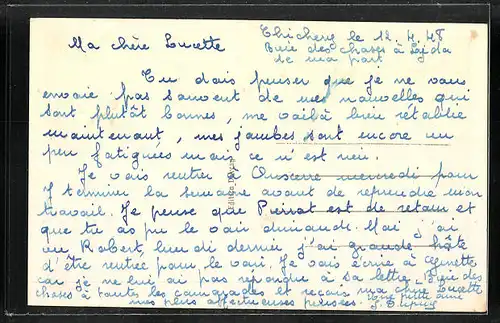 Chichery le 12.4.48
Bien des choses à
de ma part.
Ma chère Lucette
Tu dois penser que je ne vous
envoie pas souvent de mes nouvelles qui
sont plutôt bonnes, me voilà bien rétablie
maintenant, mes jambes sont encore un
peu fatiguées mais ce n'est rien.
Je vais rentrer à Auxerre mercredi pour
terminer la semaine avant de reprendre mon
travail. Je pense que Pierrot est de retour et
que tu as pu le voir dimanche. Moi j'ai
vu Robert, lundi dernier j'ai grande hâte
d'être rentrée pour le voir. Je vais écrire à
car je ne lui ai pas répondu à sa lettre. Bien des
choses à toutes les camarades et reçois ma chère Lucette
mes plus affectueuses pensées.
Ton petite amie